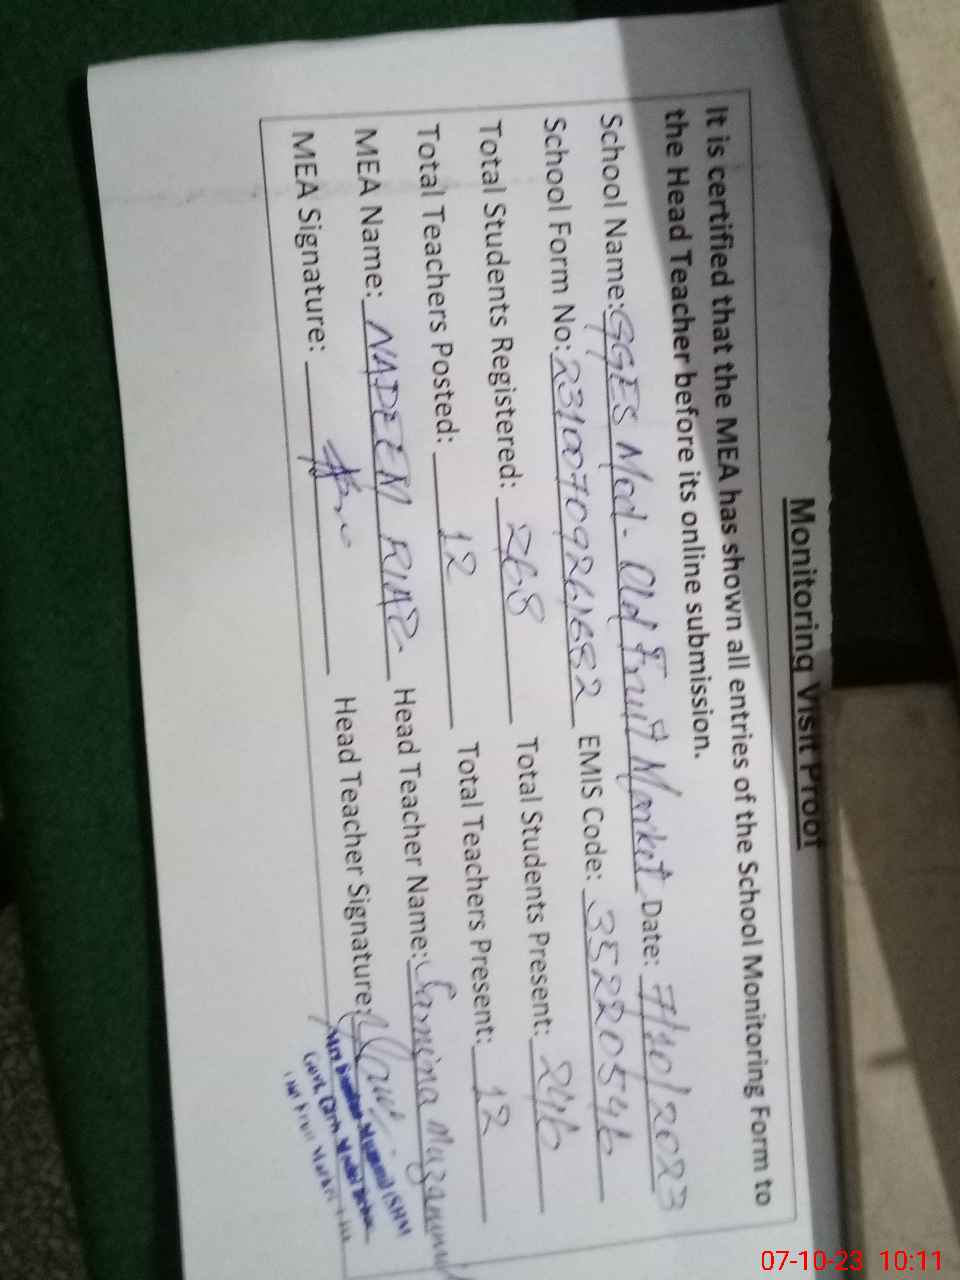 Monitoring Visit Proof
It is certified that the MEA has shown all entries of the School Monitoring Form to
the Head Teacher before its online submission.
School Name: GGES Mod- Old Fruit Market Date: 7/10/2023
School Form No: 23100709261682 EMIS Code: 35220546
Total Students Registered: 268 Total Students Present: 246
Total Teachers Posted: 12 Total Teachers Present: 12
MEA Name: NADEEM RIAZ Head Teacher Name: Samina Muzammil
MEA Signature: Head Teacher Signature:
07-10-23 10:11